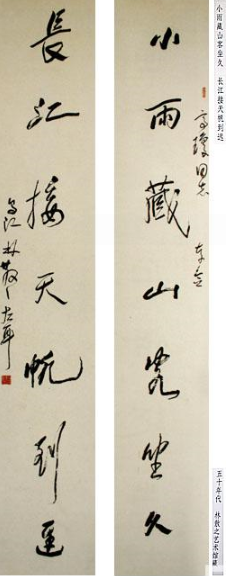 小雨藏山客坐久　长江接天帆到迟
小雨藏山客坐久
同志
長江接天帆到遲
林散之左耳
五十年代　林散之艺术馆藏